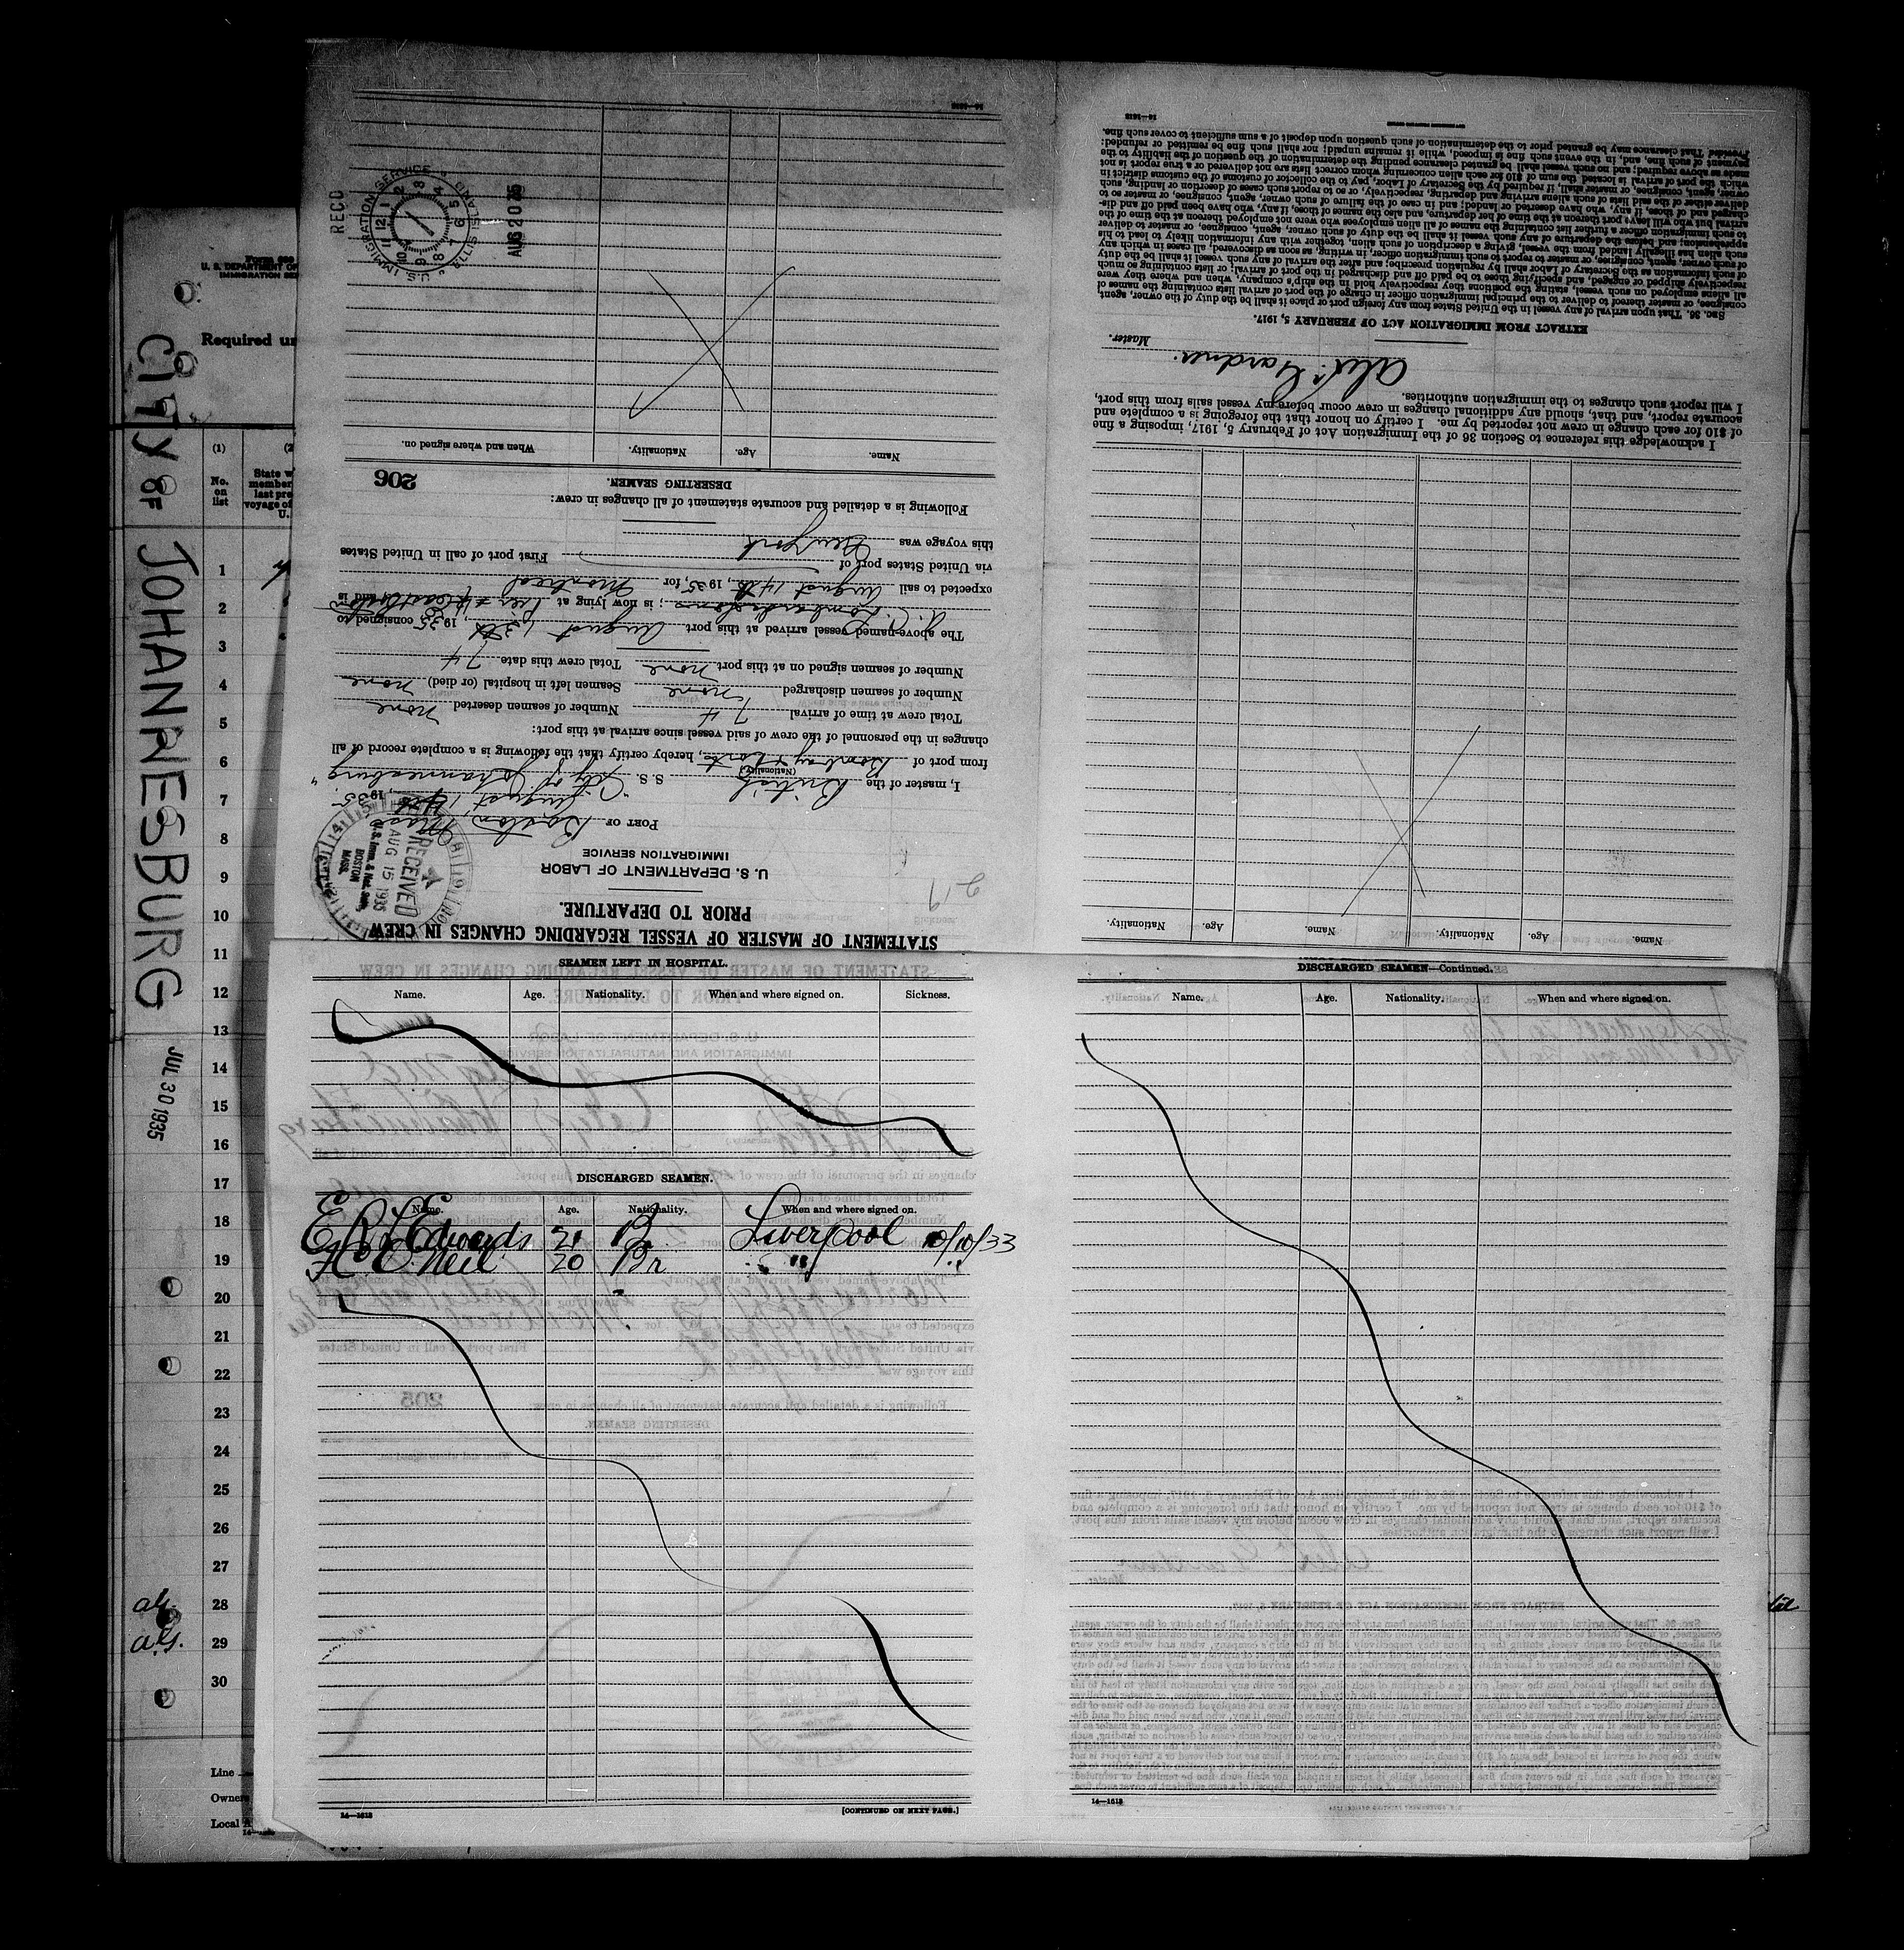 CITY OF JOHANNESBURG
JUL 30 1935
U. S. DEPARTMENT OF
Required un
(1)
No.
on
list
State w
member
last pre
voyage of
U.
1
2
3
4
5
6
7
8
9
10
11
12
13
14
15
16
17
18
19
20
21
22
23
24
25
26
27
28
29
30
Line
Owner
Local A
STATEMENT OF MASTER OF VESSEL REGARDING CHANGES IN CREW
PRIOR TO DEPARTURE.
U. S. DEPARTMENT OF LABOR
IMMIGRATION SERVICE
RECEIVED
AUG 15 1935
BOSTON
MASS.
217
PORT OF Boston Mass
August 14th, 1935
I, master of the British S. S. "City of Johannesburg"
(Nationality)
from port of Bombay, hereby certify that the following is a complete record of all
changes in the personnel of the crew of said vessel since arrival at this port:
Total crew at time of arrival 74 Number of seamen deserted none
Number of seamen discharged none Seamen left in hospital (or died) none
Number of seamen signed on at this port none Total crew this date 74
The above-named vessel arrived at this port August 13th, 1935, consigned to
; is now lying at Pier and is
expected to sail August 14th, 1935, for Montreal
via United States port of First port of call in United States
this voyage was New York
Following is a detailed and accurate statement of all changes in crew:
206
DESERTING SEAMEN.
Name. Age. Nationality. When and where signed on.
RECD
U.S. IMMIGRATION SERVICE ELLIS ISLAND
AUG 20 35
Name. Age. Nationality. Name. Age. Nationality.
I acknowledge this reference to Section 36 of the Immigration Act of February 5, 1917, imposing a fine
of $10 for each change in crew not reported by me. I certify on honor that the foregoing is a complete and
accurate report, and that, should any additional changes in crew occur before my vessel sails from this port,
I will report such changes to the immigration authorities.
Alexr Gardner.
Master.
EXTRACT FROM IMMIGRATION ACT OF FEBRUARY 5, 1917.
SEC. 36. That upon arrival of any vessel in the United States from any foreign port or place it shall be the duty of the owner, agent,
consignee, or master thereof to deliver to the principal immigration officer in charge of the port of arrival lists containing the names of
all aliens employed on such vessel, stating the positions they respectively hold in the ship's company, when and where they were
respectively shipped or engaged, and specifying those to be paid off and discharged in the port of arrival; or lists containing so much
of such information as the Secretary of Labor shall by regulation prescribe; and after the arrival of any such vessel it shall be the duty
of such owner, agent, consignee, or master to report to such immigration officer, in writing, as soon as discovered, all cases in which any
such alien has illegally landed from the vessel, giving a description of such alien, together with any information likely to lead to his
apprehension; and before the departure of any such vessel it shall be the duty of such owner, agent, consignee, or master to deliver
to such immigration officer a further list containing the names of all alien employees who were not employed thereon at the time of the
arrival but who will leave port thereon at the time of her departure, and also the names of those, if any, who have been paid off and dis-
charged and of those, if any, who have deserted or landed; and in case of the failure of such owner, agent, consignee, or master so to
deliver either of the said lists of such aliens arriving and departing, respectively, or so to report such cases of desertion or landing, such
owner, agent, consignee, or master shall, if required by the Secretary of Labor, pay to the collector of customs of the customs district in
which the port of arrival is located the sum of $10 for each alien concerning whom correct lists are not delivered or a true report is not
made as above required; and no such vessel shall be granted clearance pending the determination of the question of the liability to the
payment of such fine, and, in the event such fine is imposed, while it remains unpaid; nor shall such fine be remitted or refunded:
Provided That clearance may be granted prior to the determination of such question upon deposit of a sum sufficient to cover such fine.
SEAMEN LEFT IN HOSPITAL.
Name. Age. Nationality. When and where signed on. Sickness.
DISCHARGED SEAMEN.
Name. Age. Nationality. When and where signed on.
E R Edwards 21 Br Liverpool 10/10/33
H O'Neil 20 Br " "
14—1613
[CONTINUED ON NEXT PAGE.]
DISCHARGED SEAMEN—Continued.
Name. Age. Nationality. When and where signed on.
14—1613